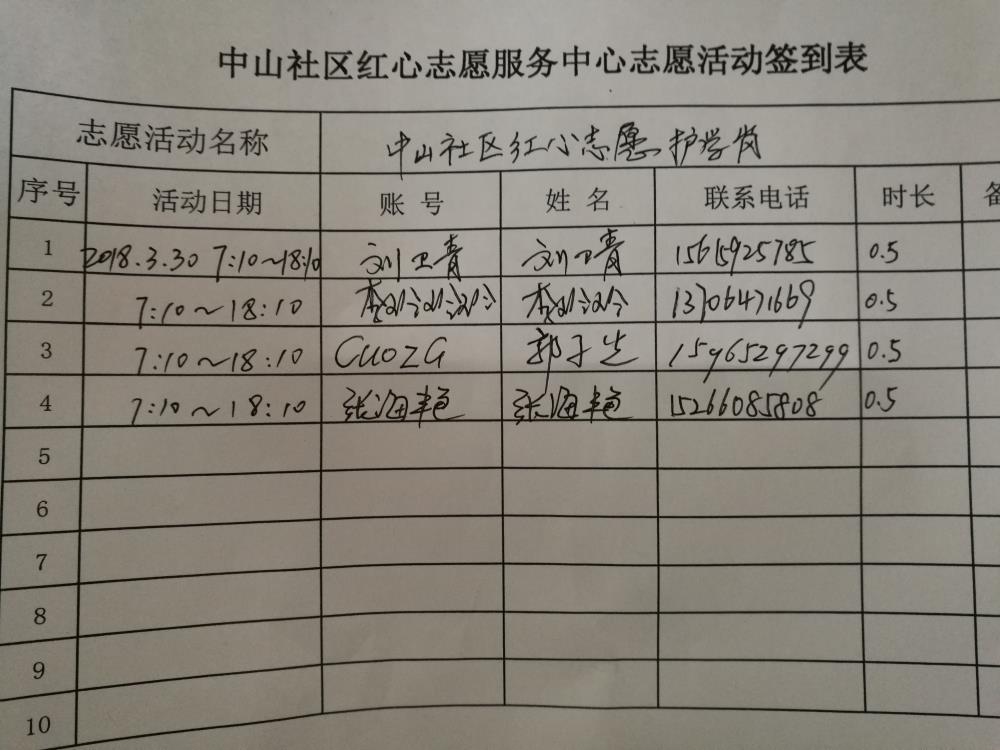 中山社区红心志愿服务中心志愿活动签到表
志愿活动名称 中山社区红心志愿护学岗
序号 活动日期 账号 姓名 联系电话 时长
1 2018.3.30 7:10~18:10 刘卫青 刘卫青 15615925785 0.5
2 7:10~18:10 13706471669 0.5
3 7:10~18:10 CUOZG 15965297299 0.5
4 7:10~18:10 张海艳 张海艳 15266085808 0.5
5
6
7
8
9
10